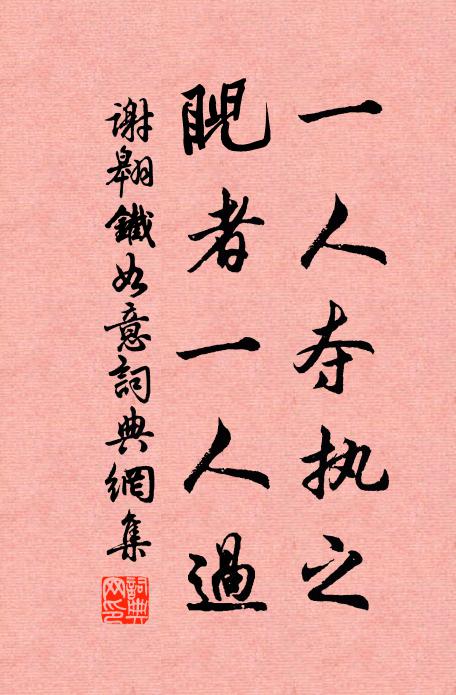 一人夺执之
睨者一人過
谢翱鐵如意詞典網集
詞典网印